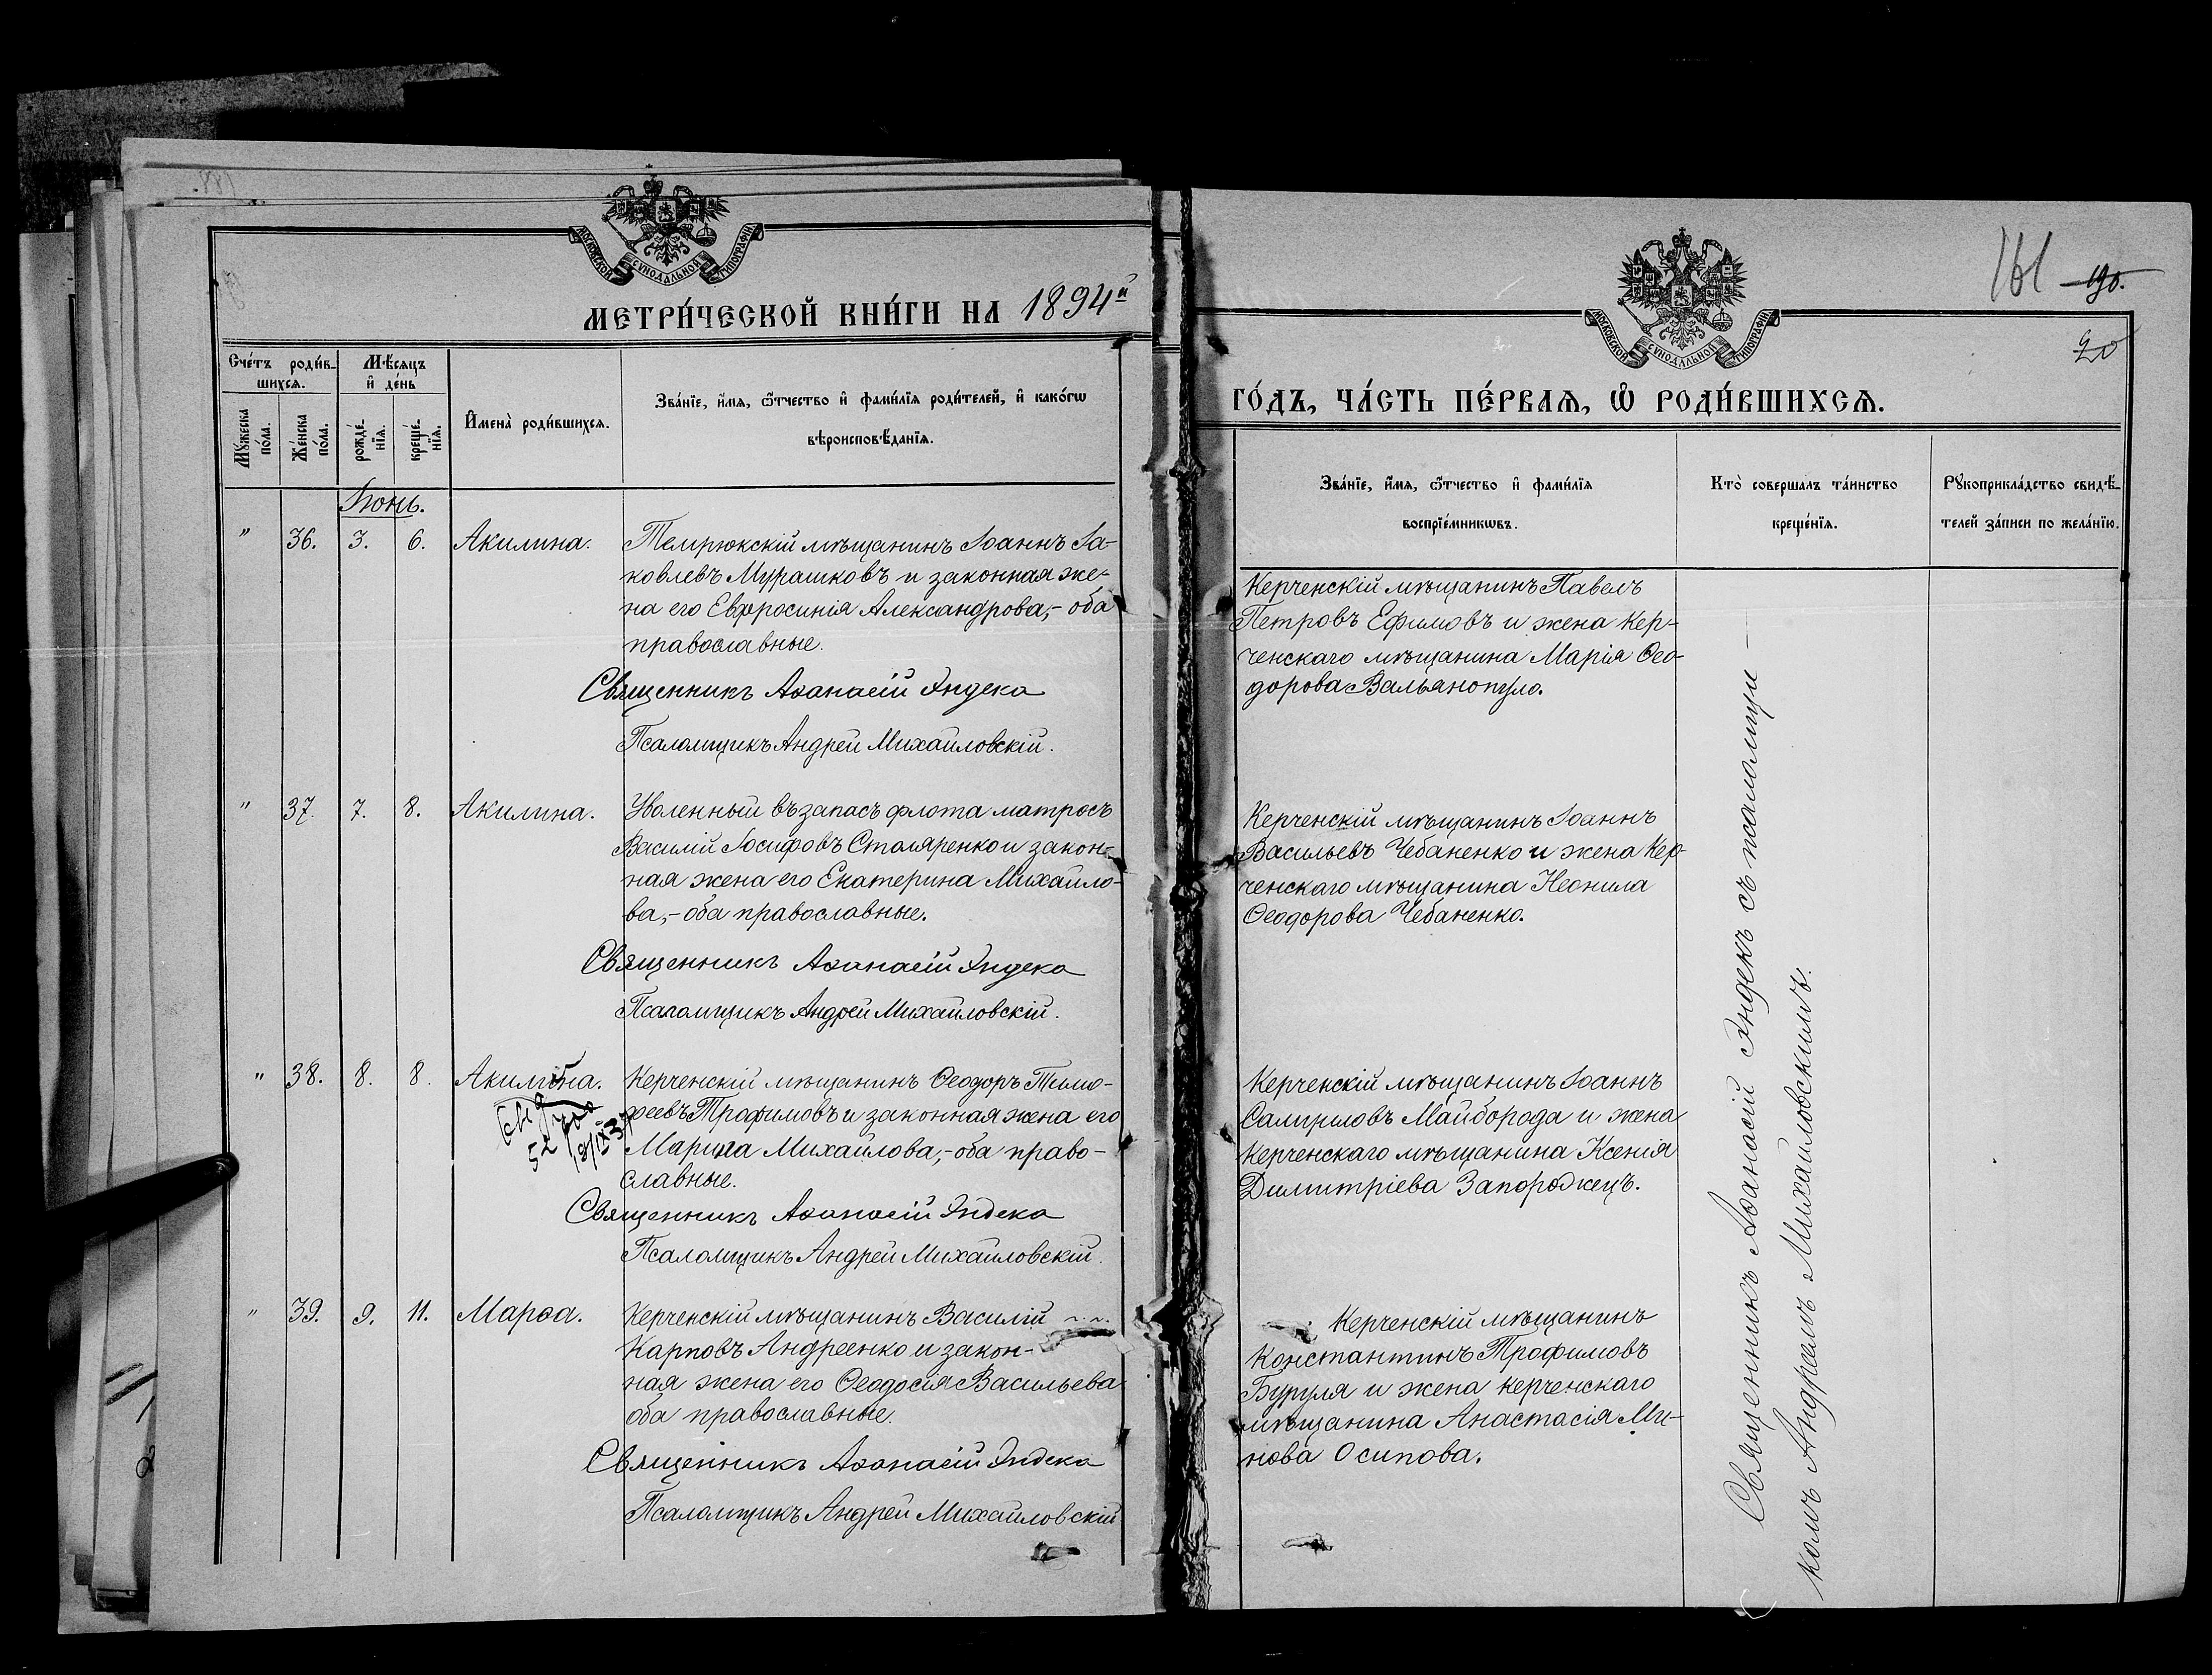 МОСКОВСКОЙ СѴНОДАЛЬНОЙ ТИПОГРАФІИ
МЕТРИ́ЧЕСКОЙ КНИ́ГИ НА 1894й
Сче́тъ роди́в-
шихсѧ.
Мѣ́сѧцъ
и҆ де́нь
Мꙋ́жеска
по́ла.
Же́нска
по́ла.
рожде́-
нїѧ.
креще́-
нїѧ.
И҆мена̀ роди́вшихсѧ.
Зва́нїе, и҆́мѧ, ѻ҆́тчество и҆ фами́лїѧ роди́телей, и҆ како́гѡ
вѣроисповѣ́данїѧ.
Іюнь.
" 36. 3. 6. Акилина.
Темрюкскій мѣщанинъ Іоаннъ Іа-
ковлевъ Мурашковъ и законная же-
на его Евфросинія Александрова,- оба
православные.
Священникъ Аѳанасій Индека
Псаломщикъ Андрей Михайловскій.
" 37. 7. 8. Акилина.
Уволенный въ запасъ флота матросъ
Василій Іосифовъ Столяренко и закон-
ная жена его Екатерина Михайло-
ва,- оба православные.
Священникъ Аѳанасій Индека
Псаломщикъ Андрей Михайловскій.
" 38. 8. 8. Акилина.
Керченскій мѣщанинъ Ѳеодоръ Тимо-
феевъ Трофимовъ и законная жена его
Марина Михайлова,- оба право-
славные.
Священникъ Аѳанасій Индека
Псаломщикъ Андрей Михайловскій.
" 39. 9. 11. Марѳа.
Керченскій мѣщанинъ Василій
Карповъ Андреенко и закон-
ная жена его Ѳеодосія Васильева
оба православные.
Священникъ Аѳанасій Индека
Псаломщикъ Андрей Михайловскій.
161 190.
20
МОСКОВСКОЙ СѴНОДАЛЬНОЙ ТИПОГРАФІИ
ГО́ДЪ, ЧА́СТЬ ПЕ́РВАѦ, Ѡ҆ РОДИ́ВШИХСѦ.
Зва́нїе, и҆́мѧ, ѻ҆́тчество и҆ фами́лїѧ
воспрїе́мникѡвъ.
Кто̀ соверша́лъ та́инство
креще́нїѧ.
Рꙋкоприкла́дство свидѣ́-
телей за́писи по жела́нїю.
Керченскій мѣщанинъ Павелъ
Петровъ Ефимовъ и жена Кер-
ченскаго мѣщанина Марія Ѳео-
дорова Вальянопуло.
Керченскій мѣщанинъ Іоаннъ
Васильевъ Чебаненко и жена Кер-
ченскаго мѣщанина Неонила
Ѳеодорова Чебаненко.
Керченскій мѣщанинъ Іоаннъ
Самуиловъ Майборода и жена
Керченскаго мѣщанина Ксенія
Димитріева Запорожецъ.
Керченскій мѣщанинъ
Константинъ Трофимовъ
Буруля и жена керченскаго
мѣщанина Анастасія Ми-
нова Осипова.
Священникъ Аѳанасій Индекъ съ псаломщи-
комъ Андреемъ Михайловскимъ.